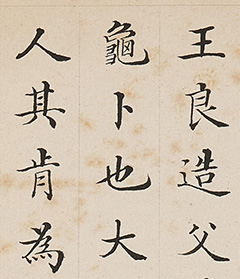 王良造父
龜卜也大
人其肯為